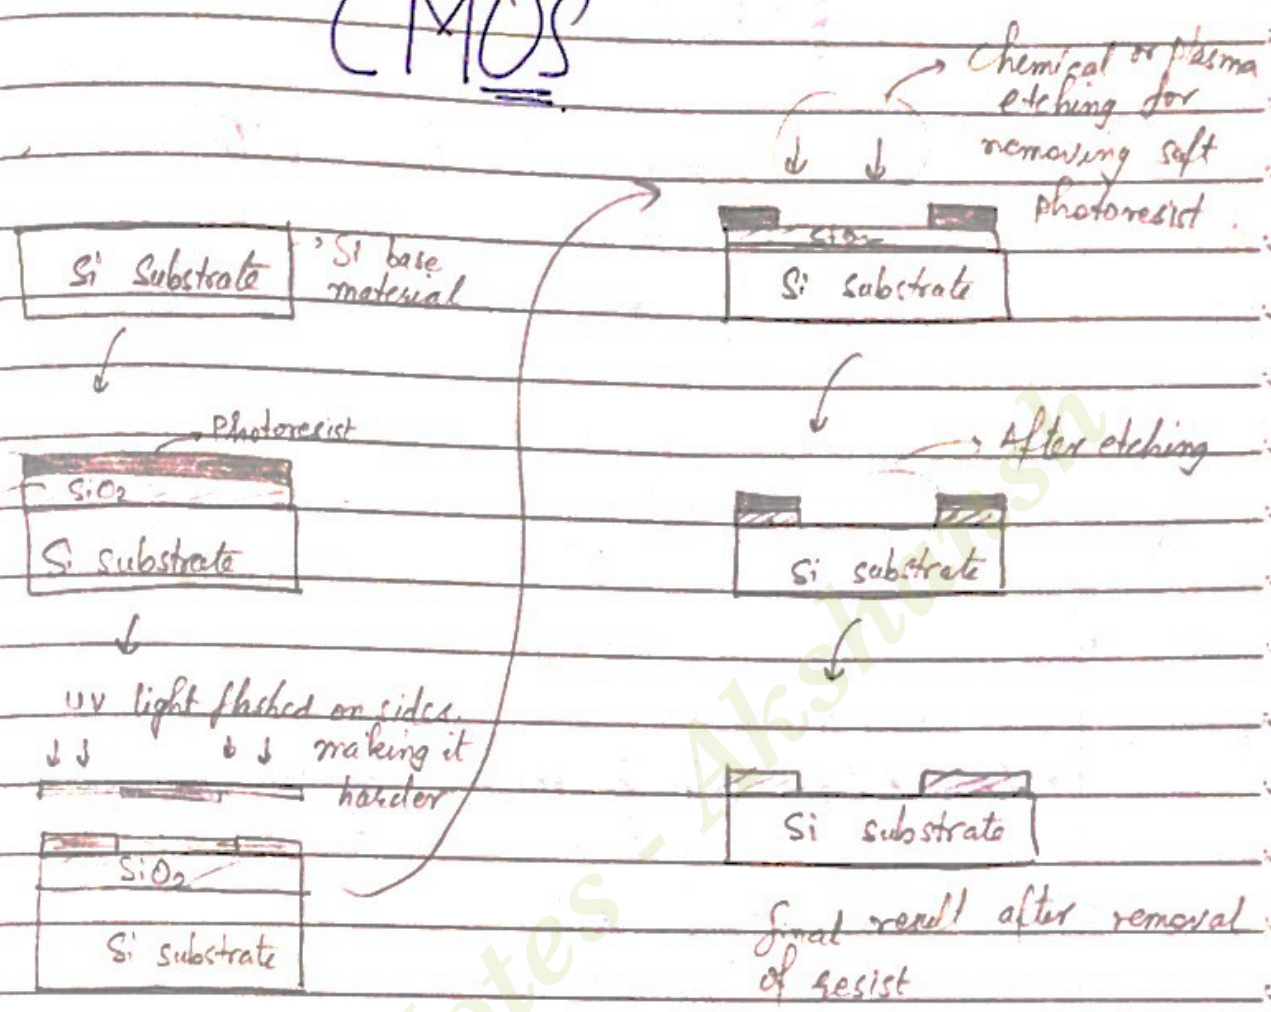 CMOS
Si Substrate
Si base
material
Photoresist
SiO2
Si substrate
UV light flashed on sides.
making it
harder
SiO2
Si substrate
Chemical or plasma
etching for
removing soft
photoresist.
SiO2
Si substrate
After etching
Si substrate
Si substrate
final result after removal
of resist
otes - Akshansh